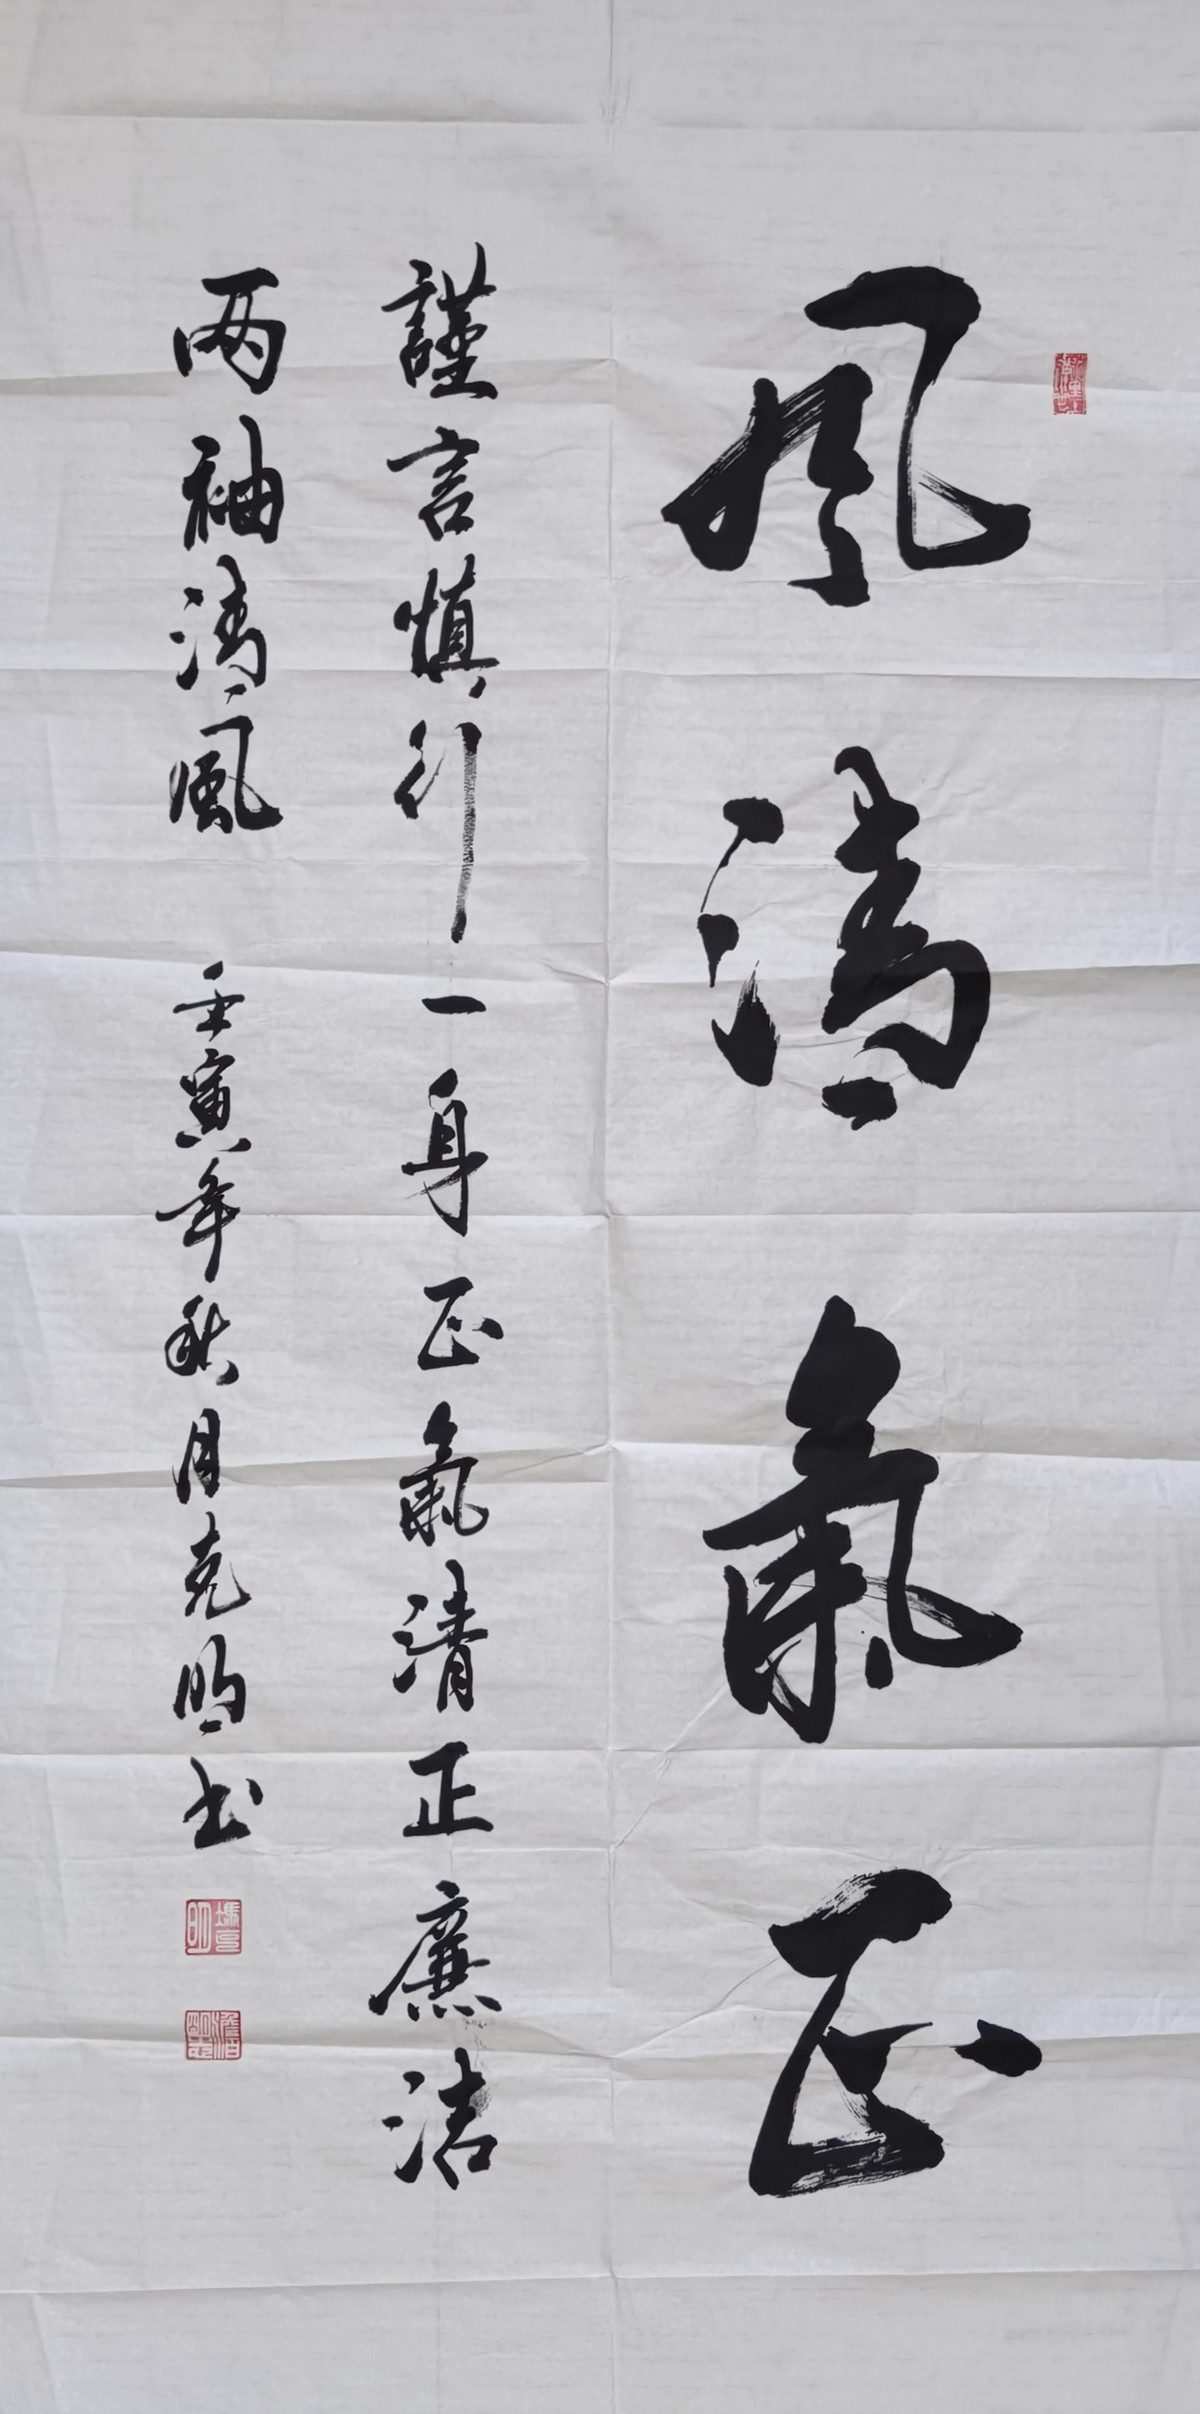 風清氣正
謹言慎行一身正氣清正廉洁
两袖清風 壬寅年秋月克明书